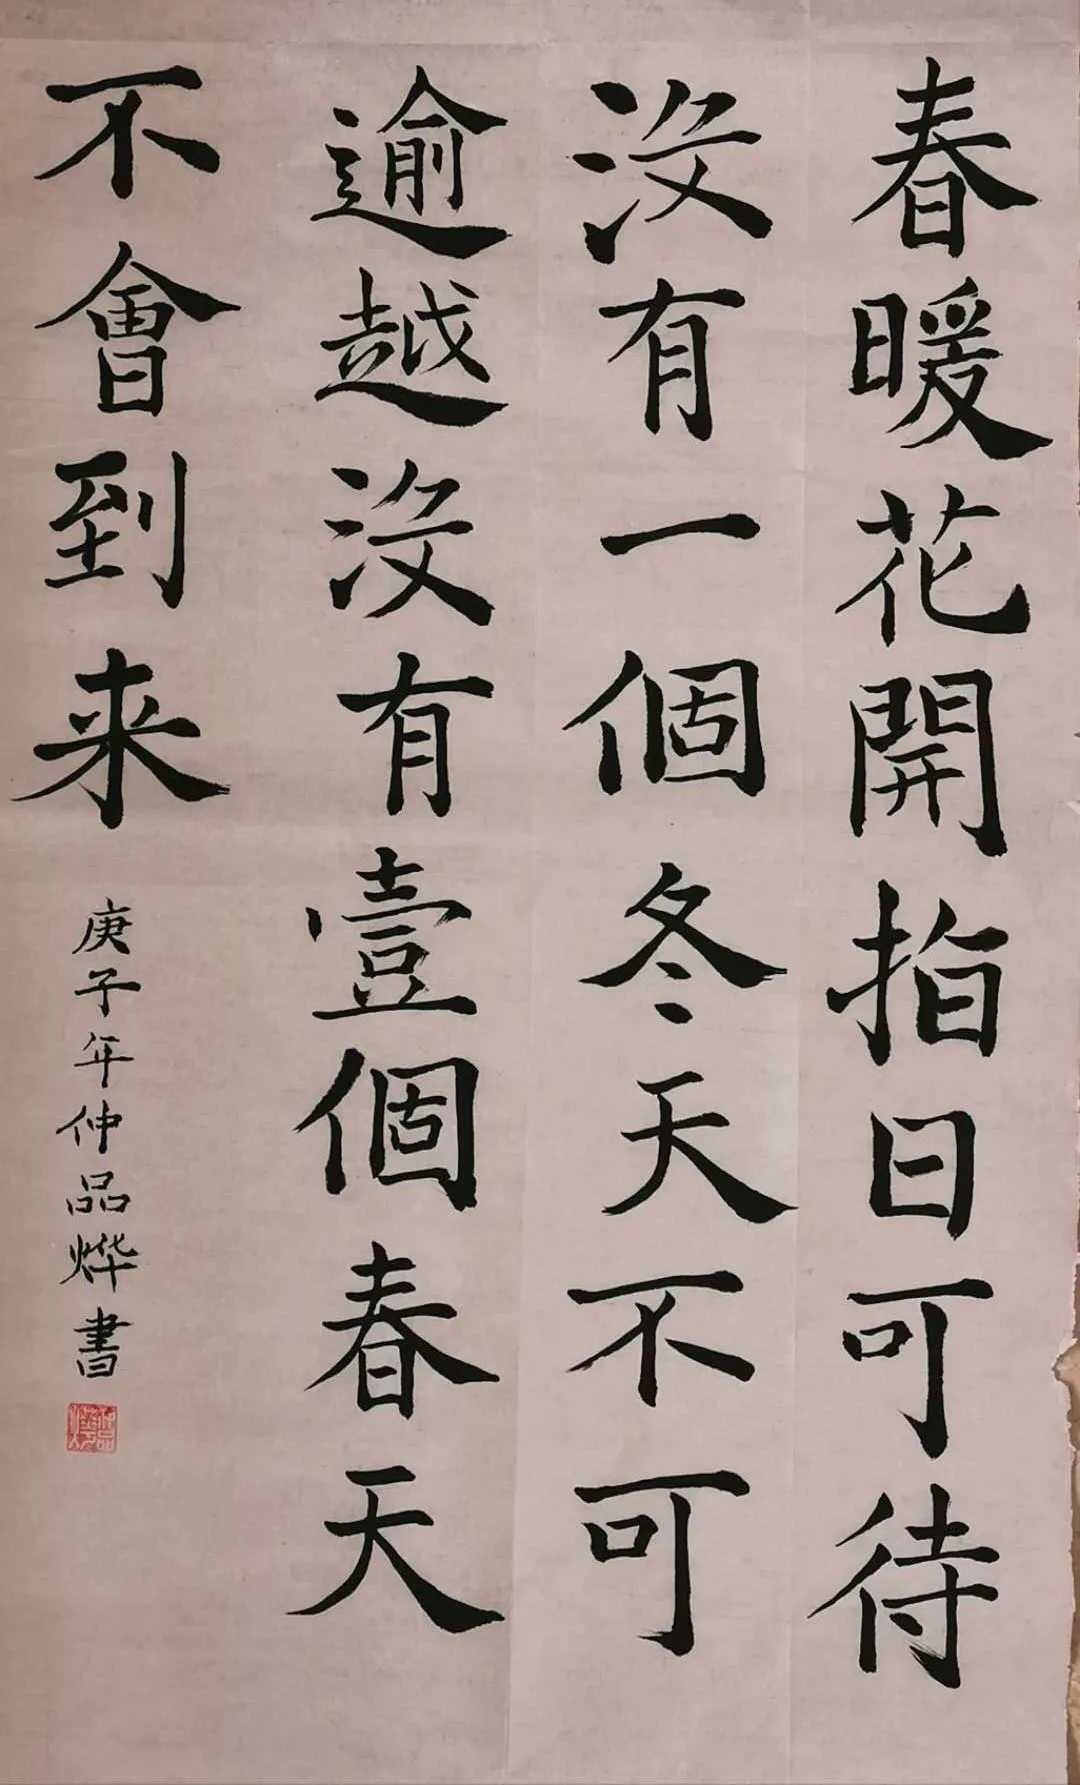 春暖花開指日可待
没有一個冬天不可
逾越没有壹個春天
不會到来
庚子年仲品烨書